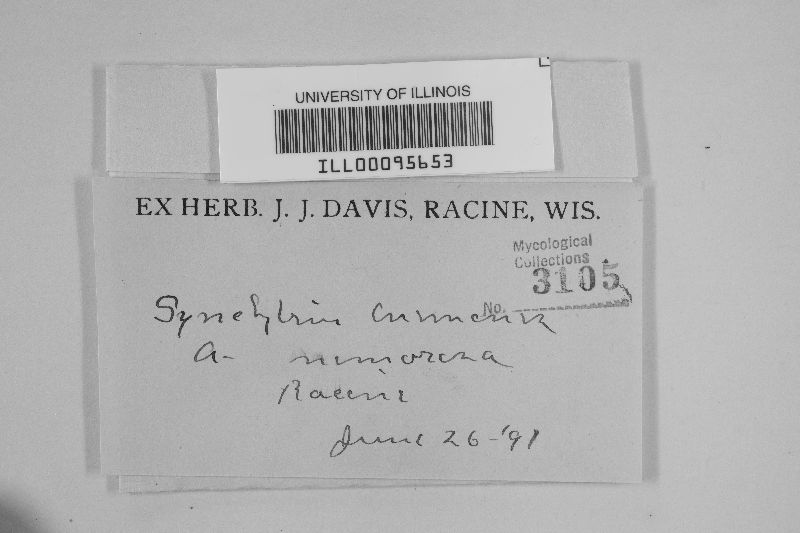 UNIVERSITY OF ILLINOIS
ILL00095653
EX HERB. J. J. DAVIS, RACINE, WIS.
Mycological
Collections
3105
No.
A. nemorosa
Racine
June 26-'91